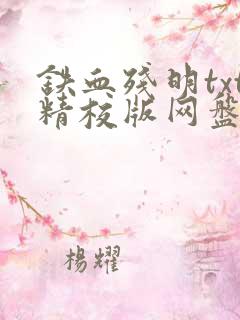 鉄血残明txt
精校版网盘
楊耀